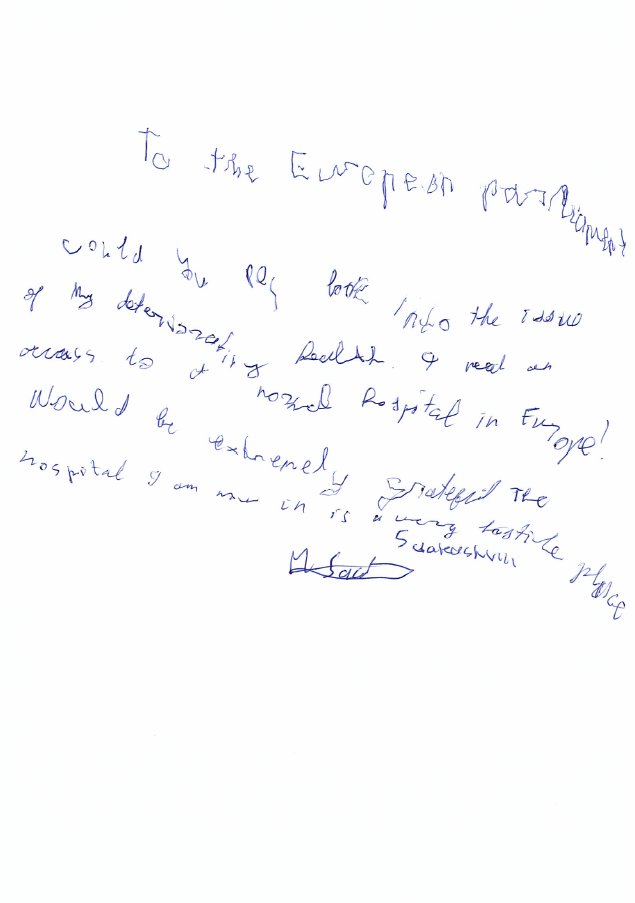 To the European parliament
could you pls look into the issue
of my deteriorating health. I need an
access to a normal hospital in Europe!
Would be extremely grateful The
hospital I am now in is a very hostile place
M. Saa
Saakashvili